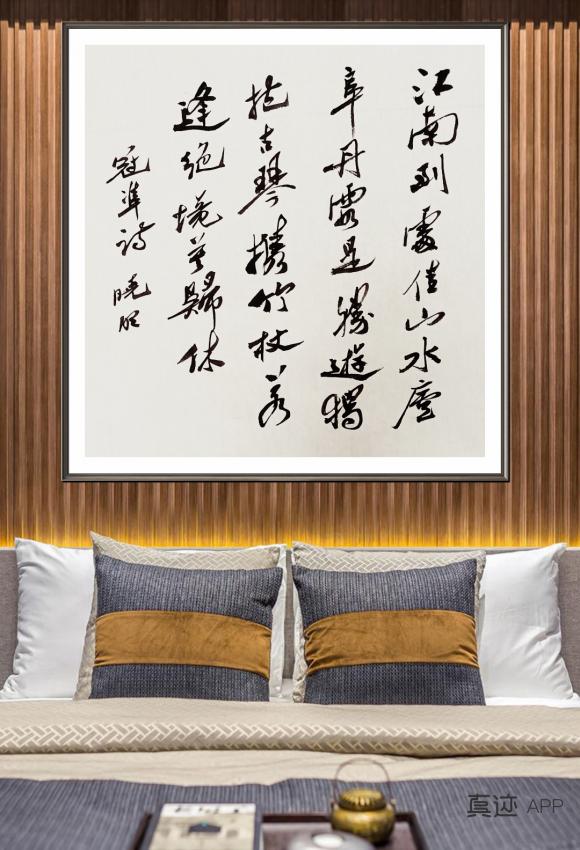 江南到處佳山水廬
阜丹霞是勝遊獨
抱古琴攜竹杖若
逢絕境莫歸休
寇準詩 曉
真迹 APP